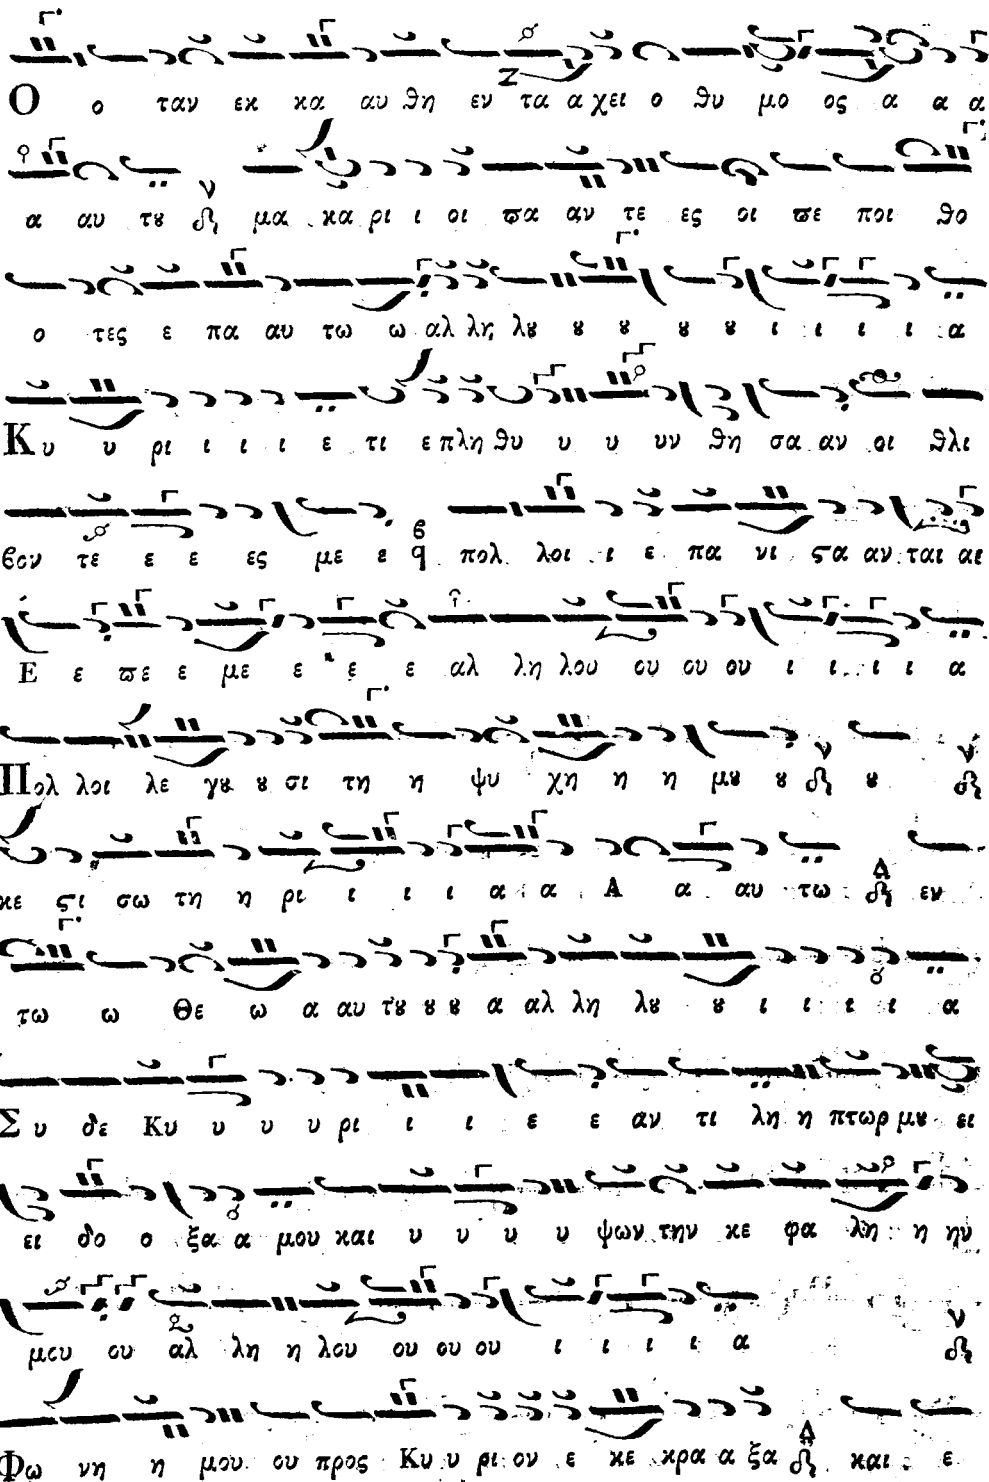 Ο ο ταν εκ κα αυ θη εν τα α χει ο θυ μο ος α α α
α αυ τȣ μα κα ρι ι οι πα αν τε ες οι πε ποι θο
ο τες ε πα αυ τω ω αλ λη λȣ ȣ ȣ ȣ ȣ ι ι ι ι α
Κυ υ ρι ι ι ι ε τι ε πλη θυ υ υ υν θη σα αν οι θλι
βον τε ε ε ες με ε πολ λοι ι ε πα νι ϛα αν ται αι
Ε ε πε ε με ε ε ε αλ λη λου ου ου ου ι ι ι ι α
Πολ λοι λε γȣ ȣ σι τη η ψυ χη η η μȣ ȣ ȣ
κε ϛι σω τη η ρι ι ι ι α α Α α αυ τω εν
τω ω Θε ω α αυ τȣ ȣ ȣ α αλ λη λȣ ȣ ι ι ι ι α
Συ δε Κυ υ υ υ ρι ι ι ε ε αν τι λη η πτωρ μȣ ει
ει δο ο ξα α μου και υ υ υ υ ψων την κε φα λη η ην
μου ου αλ λη η λου ου ου ου ι ι ι ι α
Φω νη η μου ου προς Κυ υ ρι ον ε κε κρα α ξα και ε